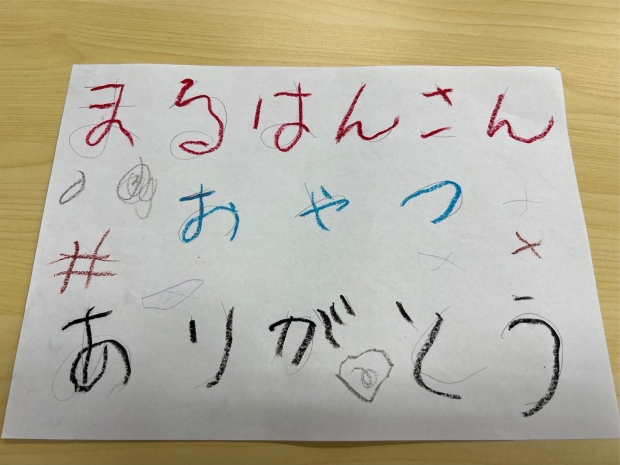 まるはんさん
おやつ
ありがとう